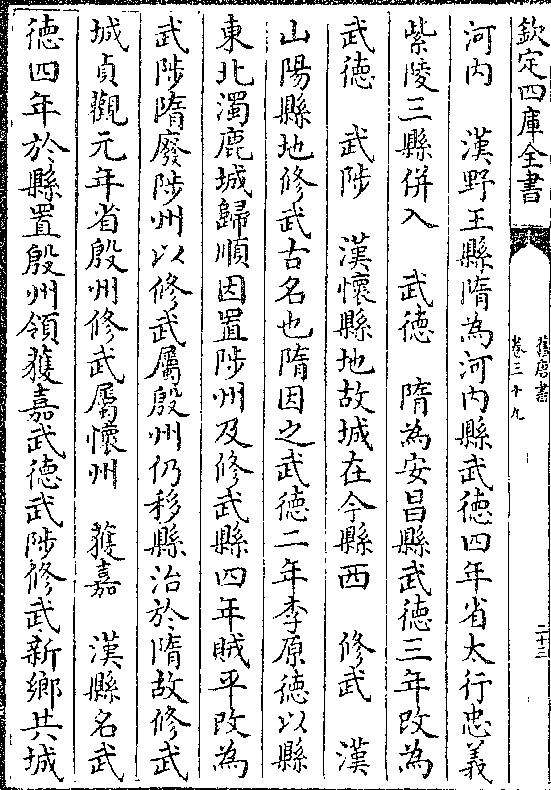 欽定四庫全書
舊唐書
卷三十九
二十三
河内　漢野王縣隋為河内縣武德四年省太行忠義
紫陵三縣併入　武德　隋為安昌縣武德三年改為
武德　武陟　漢懷縣地故城在今縣西　修武　漢
山陽縣地修武古名也隋因之武德二年李原德以縣
東北濁鹿城歸順因置陟州及修武縣四年賊平改為
武陟隋廢陟州以修武屬殷州仍移縣治於隋故修武
城貞觀元年省殷州修武屬懷州　獲嘉　漢縣名武
徳四年於縣置殷州領獲嘉武德武陟修武新鄉共城